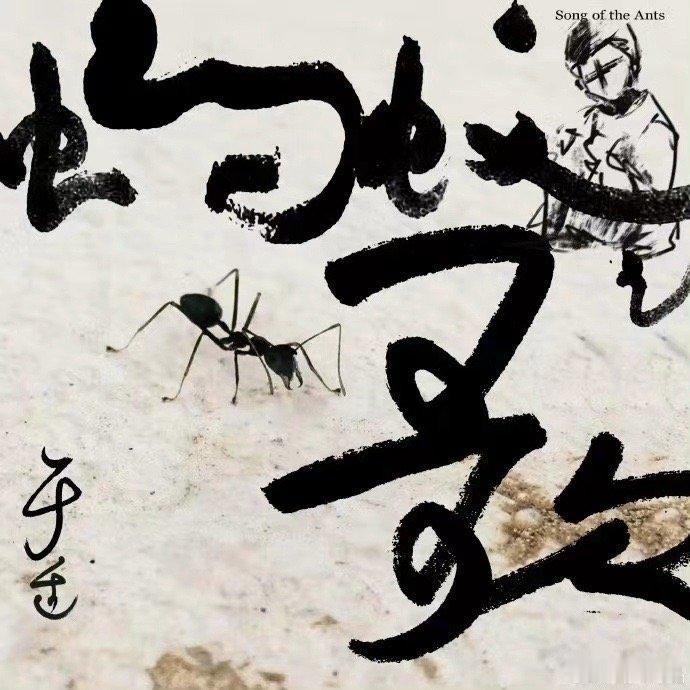 Song of the Ants
蚂蚁
歌
于连